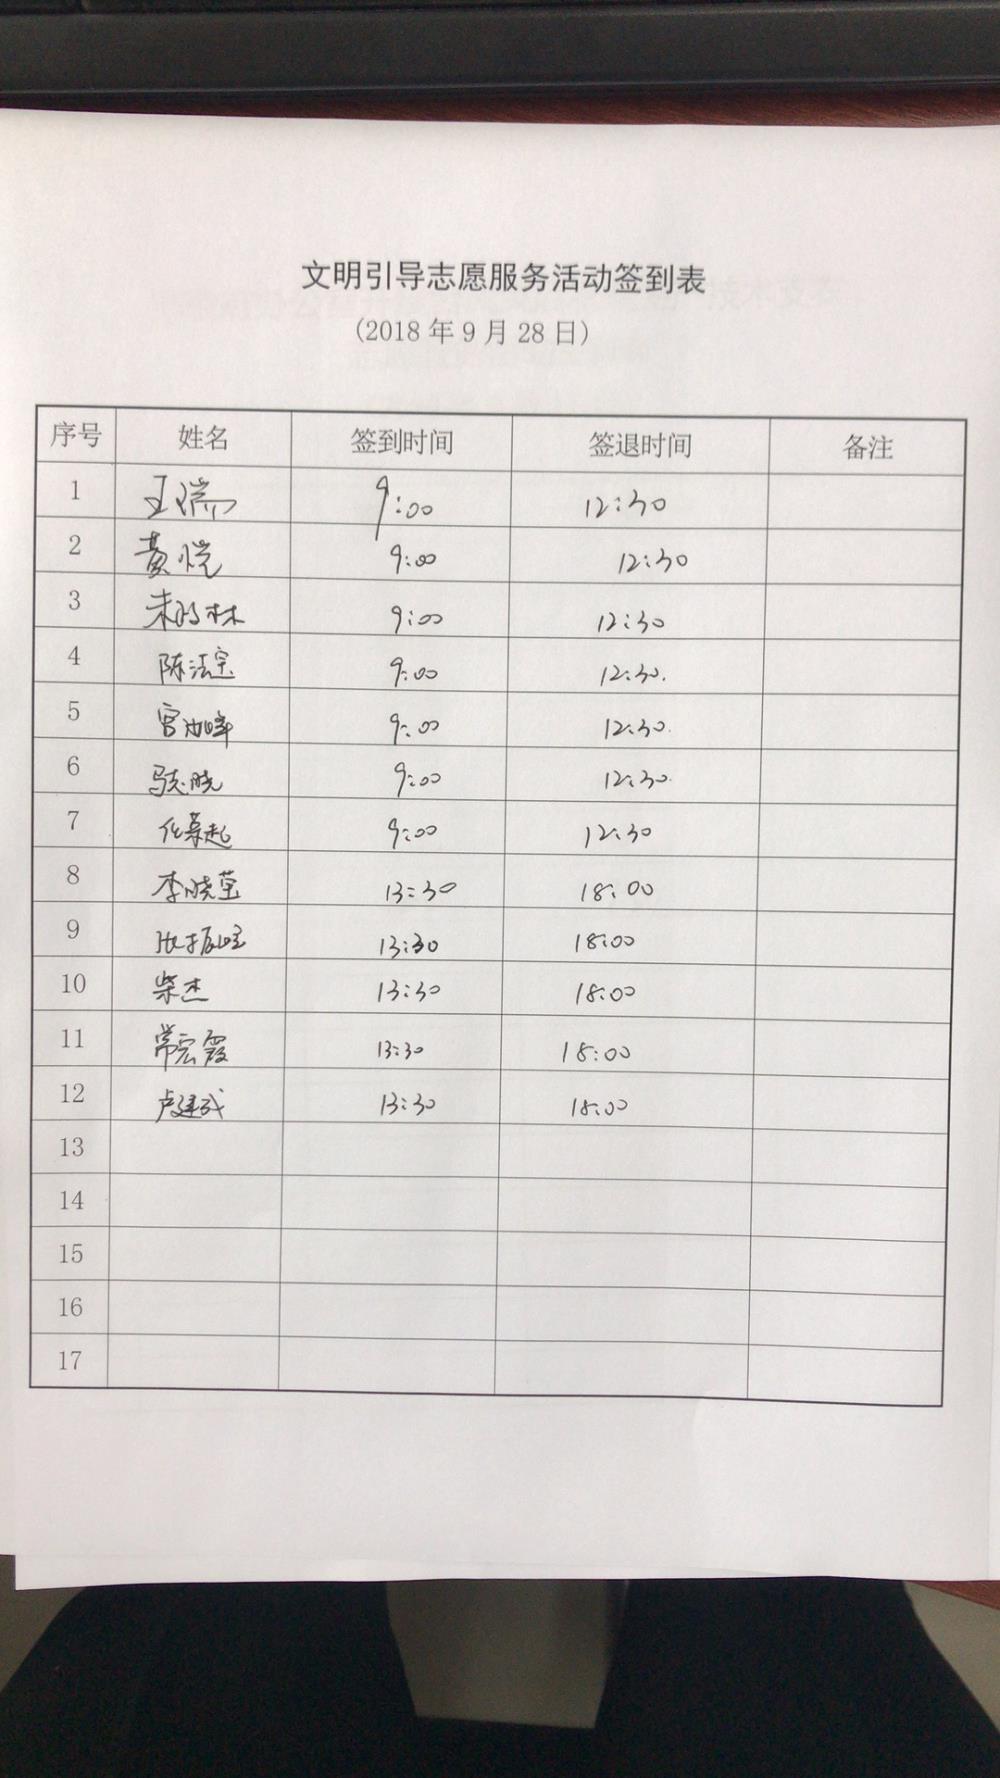 文明引导志愿服务活动签到表
(2018 年 9 月 28 日)
序号 姓名 签到时间 签退时间 备注
1 王瑞 9:00 12:30
2 黄悦 9:00 12:30
3 9:00 12:30
4 陈法宝 9:00 12:30
5 9:00 12:30
6 9:00 12:30
7 9:00 12:30
8 李晓莹 13:30 18:00
9 13:30 18:00
10 柴杰 13:30 18:00
11 常宏霞 13:30 18:00
12 卢建武 13:30 18:00
13
14
15
16
17